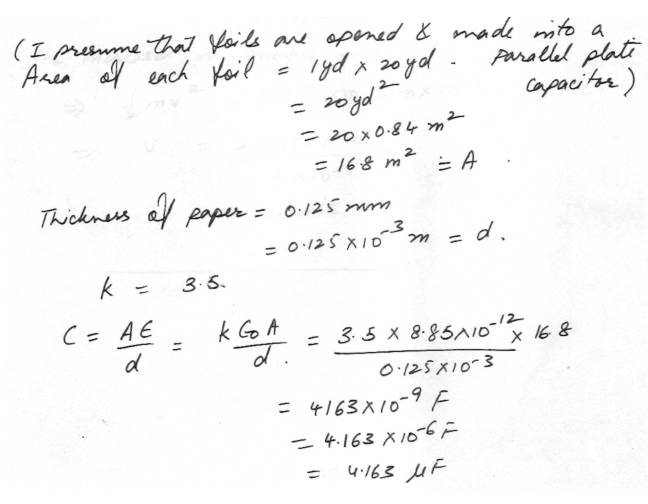 (I presume that foils are opened & made into a parallel plate capacitor)
Area of each foil = 1yd x 20yd.
= 20yd²
= 20 x 0.84 m²
= 16.8 m² = A.
Thickness of paper = 0.125 mm
= 0.125 x 10⁻³ m = d.
k = 3.5.
C = AE/d = k ε₀ A/d. = 3.5 x 8.85 x 10⁻¹² x 16.8 / 0.125 x 10⁻³
= 4163 x 10⁻⁹ F
= 4.163 x 10⁻⁶ F
= 4.163 µF